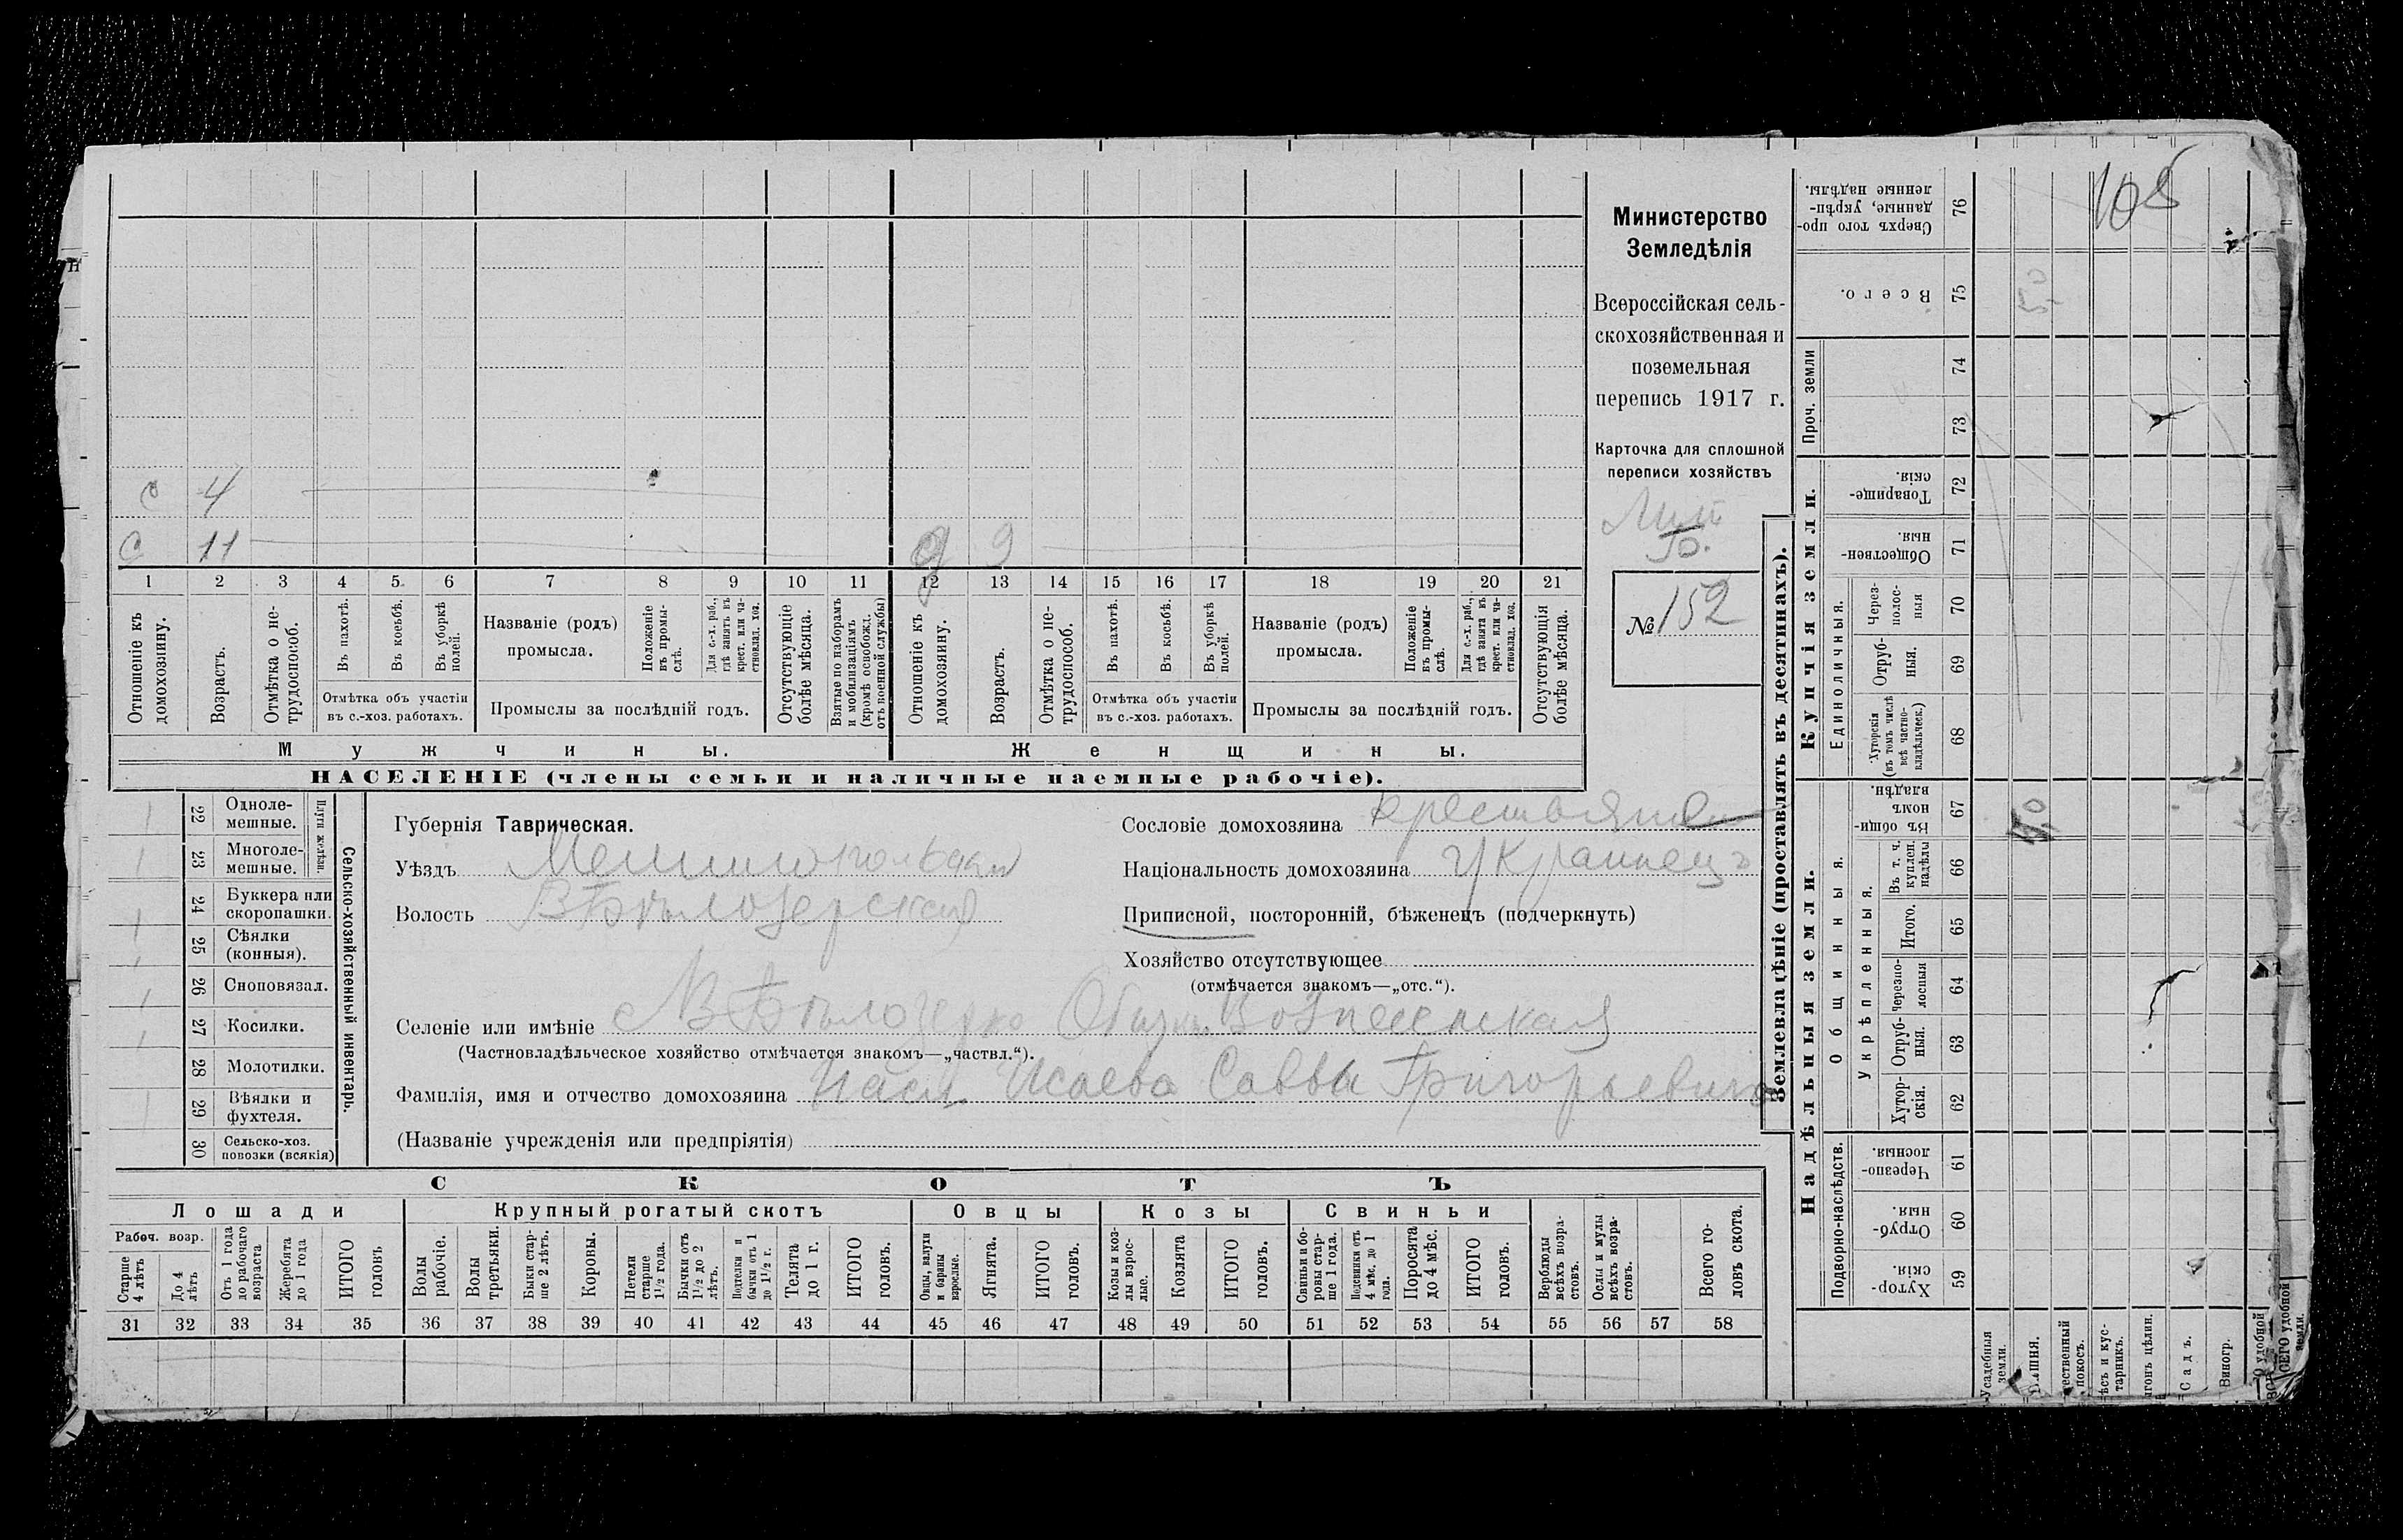 С 4
С 11 д 9
1 2 3 4 5 6 7 8 9 10 11 12 13 14 15 16 17 18 19 20 21
Отношеніе къ домохозяину.
Возрастъ.
Отмѣтка о не-
трудоспособ.
Въ пахотѣ.
Въ косьбѣ.
Въ уборкѣ
полей.
Отмѣтка объ участіи
въ с.-хоз. работахъ.
Названіе (родъ)
промысла.
Положеніе
въ промы-
слѣ.
Для с.-х. раб.,
гдѣ занятъ въ
крест. или ча-
стновлад. хоз.
Промыслы за послѣдній годъ.
Отсутствующіе
болѣе мѣсяца.
Взятые по наборамъ
и мобилизаціямъ
(кромѣ освобожд.
отъ военной службы)
Отношеніе къ
домохозяину.
Возрастъ.
Отмѣтка о не-
трудоспособ.
Въ пахотѣ.
Въ косьбѣ.
Въ уборкѣ
полей.
Отмѣтка объ участіи
въ с.-хоз. работахъ.
Названіе (родъ)
промысла.
Положеніе
въ промы-
слѣ.
Для с.-х. раб.,
гдѣ занята въ
крест. или ча-
стновлад. хоз.
Промыслы за послѣдній годъ.
Отсутствующія
болѣе мѣсяца.
Мужчины.
Женщины.
НАСЕЛЕНІЕ (члены семьи и наличные наемные рабочіе).
Министерство
Земледѣлія
Всероссійская сель-
скохозяйственная и
поземельная
перепись 1917 г.
Карточка для сплошной
переписи хозяйствъ
№ 152
22 Одноле-
мешные.
23 Многоле-
мешные.
Плуги желѣзн.
24 Буккера или
скоропашки.
25 Сѣялки
(конныя).
26 Сноповязал.
27 Косилки.
28 Молотилки.
29 Вѣялки и
фухтеля.
30 Сельско-хоз.
повозки (всякія)
Сельско-хозяйственный инвентарь.
Губернія Таврическая.
Уѣздъ Мелитопольскій
Волость В Бѣлозерская
Сословіе домохозяина крестьянин
Національность домохозяина Украинецъ
Приписной, посторонній, бѣженецъ (подчеркнуть)
Хозяйство отсутствующее
(отмѣчается знакомъ—„отс.“).
Селеніе или имѣніе с В Бѣлозерка Общин. Вознесенская
(Частновладѣльческое хозяйство отмѣчается знакомъ—„частвл.“).
Фамилія, имя и отчество домохозяина Насл. Исаева Саввы Григорьевича
(Названіе учрежденія или предпріятія)
СКОТЪ
Лошади
Крупный рогатый скотъ
Овцы
Козы
Свиньи
Рабоч. возр.
Старше
4 лѣтъ
До 4
лѣтъ
Отъ 1 года
до рабочаго
возраста
Жеребята
до 1 года
ИТОГО
головъ
Волы
рабочіе.
Волы
третьяки.
Быки стар-
ше 2 лѣтъ.
Коровы.
Нетели
старше
1½ года.
Бычки отъ
1½ до 2
лѣтъ.
Подтелки и
бычки отъ 1
до 1½ г.
Телята
до 1 г.
ИТОГО
головъ.
Овцы, валухи
и бараны
взрослые.
Ягнята.
ИТОГО
головъ.
Козы и коз-
лы взрос-
лые.
Козлята
ИТОГО
головъ.
Свиньи и бо-
ровы стар-
ше 1 года.
Подсвинки отъ
4 мѣс. до 1
года.
Поросята
до 4 мѣс.
ИТОГО
головъ.
Верблюды
всѣхъ возра-
стовъ.
Ослы и мулы
всѣхъ возра-
стовъ.
Всего го-
ловъ скота.
31 32 33 34 35 36 37 38 39 40 41 42 43 44 45 46 47 48 49 50 51 52 53 54 55 56 57 58
Землевладѣніе (проставлять въ десятинахъ).
108
Сверхъ того про-
данные, укрѣп-
ленные надѣлы.
76
Всего.
75
Проч. земли
74
73
Купчія земли.
Товарище-
скія.
72
Обществен-
ныя.
71
Единоличныя.
Через-
полос-
ныя
70
Отруб-
ныя.
69
Хуторскія
(въ томъ числѣ
всѣ частно-
владѣльческ.)
68
Надѣльныя земли.
Общинныя.
Въ общи-
номъ
владѣн.
67
Укрѣпленныя.
Въ т. ч.
куплен.
надѣлы
66
Итого.
65
Черезпо-
лосныя
64
Отруб-
ныя.
63
Хутор-
скія.
62
Подворно-наслѣдств.
Черезпо-
лосныя.
61
Отруб-
ныя.
60
Хутор-
скія.
59
Усадебныя
земли.
Пашня.
покосъ.
тарникъ.
Садъ.
Виногр.
удобной
земли.